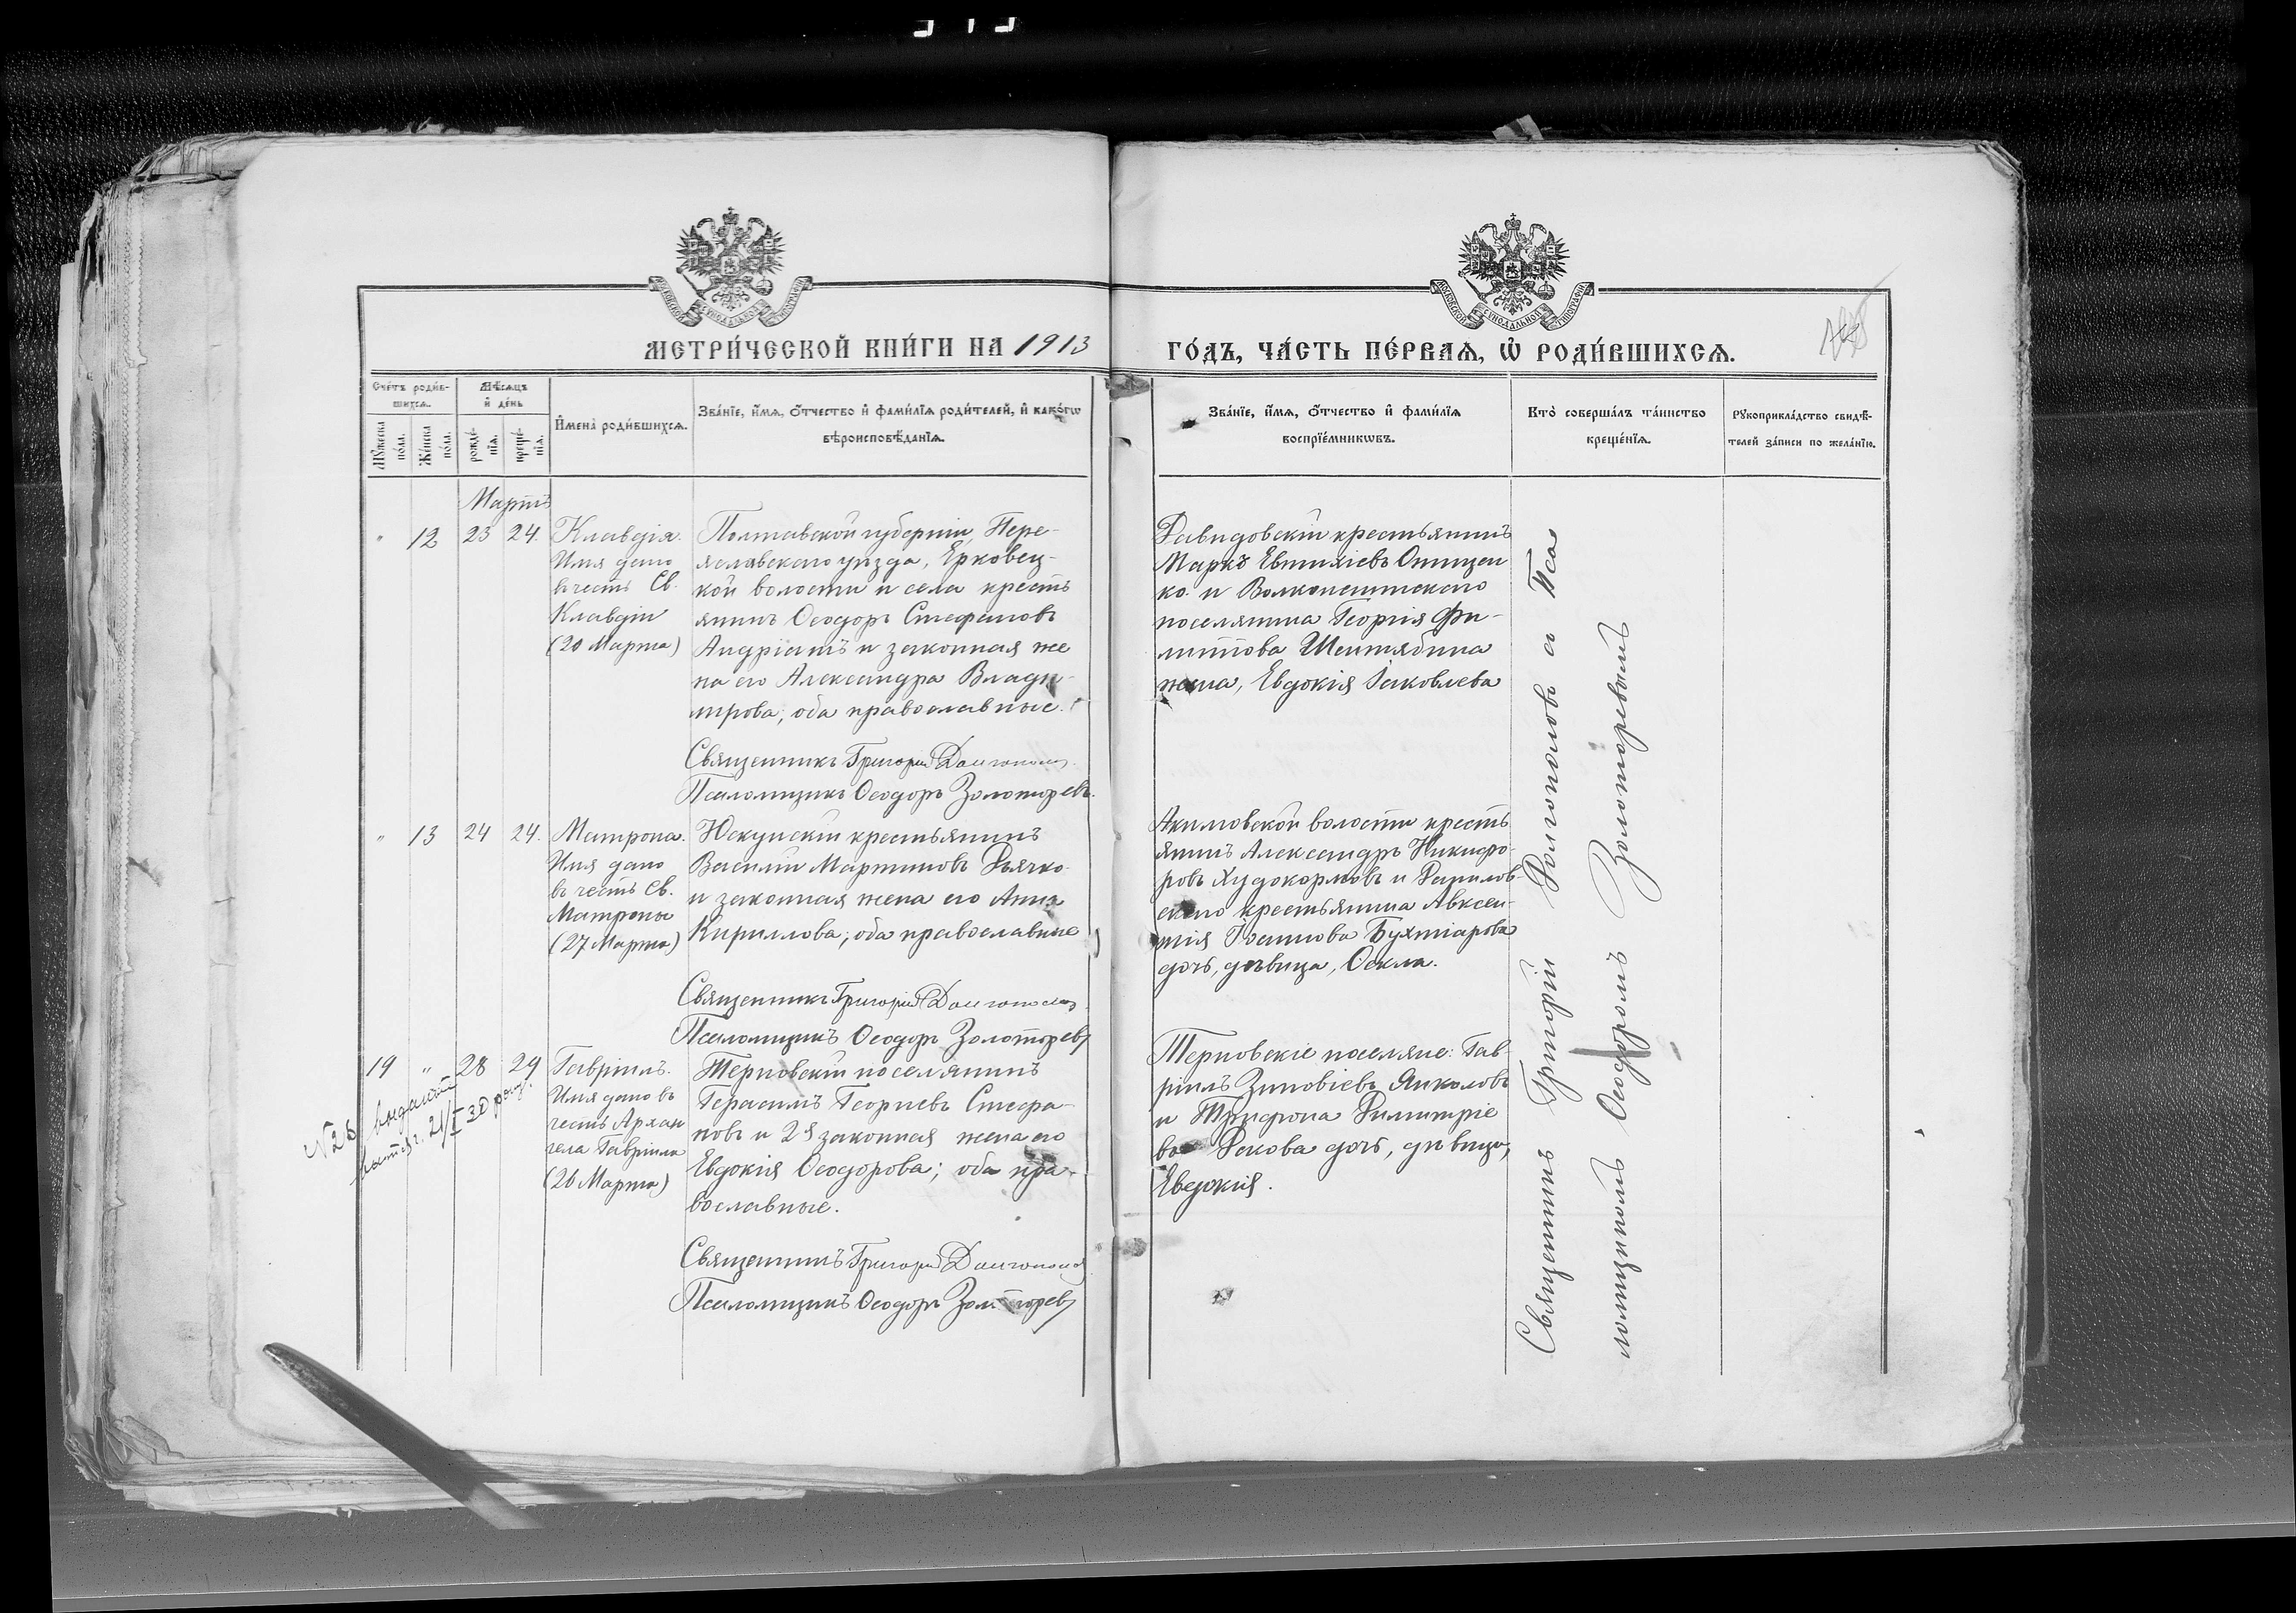 МЕТРИ́ЧЕСКОЙ КНИ́ГИ НА 1913
ГО́ДЪ, ЧА́СТЬ ПЕ́РВАѦ, Ѡ҆ РОДИ́ВШИХСѦ.
Сче́тъ роди́в-
шихсѧ.
Мѣ́сѧцъ
и҆ де́нь
Мꙋ́жеска
по́ла.
Же́нска
по́ла.
рожде́-
нїѧ.
креще́-
нїѧ.
И҆мена̀ роди́вшихсѧ.
Зва́нїе, и҆́мѧ, ѻ҆́тчество и҆ фами́лїѧ роди́телей, и҆ како́гѡ
вѣроисповѣ́данїѧ.
Зва́нїе, и҆́мѧ, ѻ҆́тчество и҆ фами́лїѧ
воспрїе́мникѡвъ.
Кто̀ соверша́лъ та́инство
креще́нїѧ.
Рꙋкоприкла́дство свидѣ́-
телей за́писи по жела́нїю.
Мартъ
" 12 23 24.
Клавдія.
Имя дано
въ честь Св.
Клавдіи
(20 Марта)
Полтавской губерніи, Пере-
яславскаго уѣзда, Ерковец-
кой волости и села кресть
янинъ Ѳеодоръ Стефановъ
Андріашъ и законная же
на его Александра Влади-
мірова; оба православные.
Священникъ Григорій Долгополовъ
Псаломщикъ Ѳеодоръ Золотаревъ.
Давидовскій крестьянинъ
Маркъ Евтихіевъ Онищен
ко и Волконештскаго
поселянина Георгія Фи-
липпова Шентябина
жена, Евдокія Іаковлева
" 13 24 24.
Матрона.
Имя дано
въ честь Св.
Матроны
(27 Марта)
Юскуйскій крестьянинъ
Василій Мартиновъ Дьячко
и законная жена его Анна
Кириллова; оба православные
Священникъ Григорій Долгополовъ
Псаломщикъ Ѳеодоръ Золотаревъ
Акимовской волости кресть
янинъ Александръ Никифо-
ровъ Худокормовъ и Данилов-
скаго крестьянина Авксен-
тія Іоаннова Бухтіарова
дочь, дѣвица, Ѳекла.
19 " 28 29
Гавріилъ.
Имя дано въ
честь Архан
гела Гавріила
(26 Марта)
Терновскій поселянинъ
Герасимъ Георгіевъ Стефа-
новъ и 2я законная жена его
Евдокія Ѳеодорова; оба пра-
вославные.
Священникъ Григорій Долгополовъ
Псаломщикъ Ѳеодоръ Золотаревъ
Терновскіе поселяне: Гав-
ріилъ Зиновіевъ Янколовъ
и Трифона Димитріе
ва Декова дочь, дѣвица,
Евдокія.
Священникъ Григорій Долгополовъ а Пса
ломщикомъ Ѳеодоромъ Золотаревымъ
№ 26 выдана
21/I 30